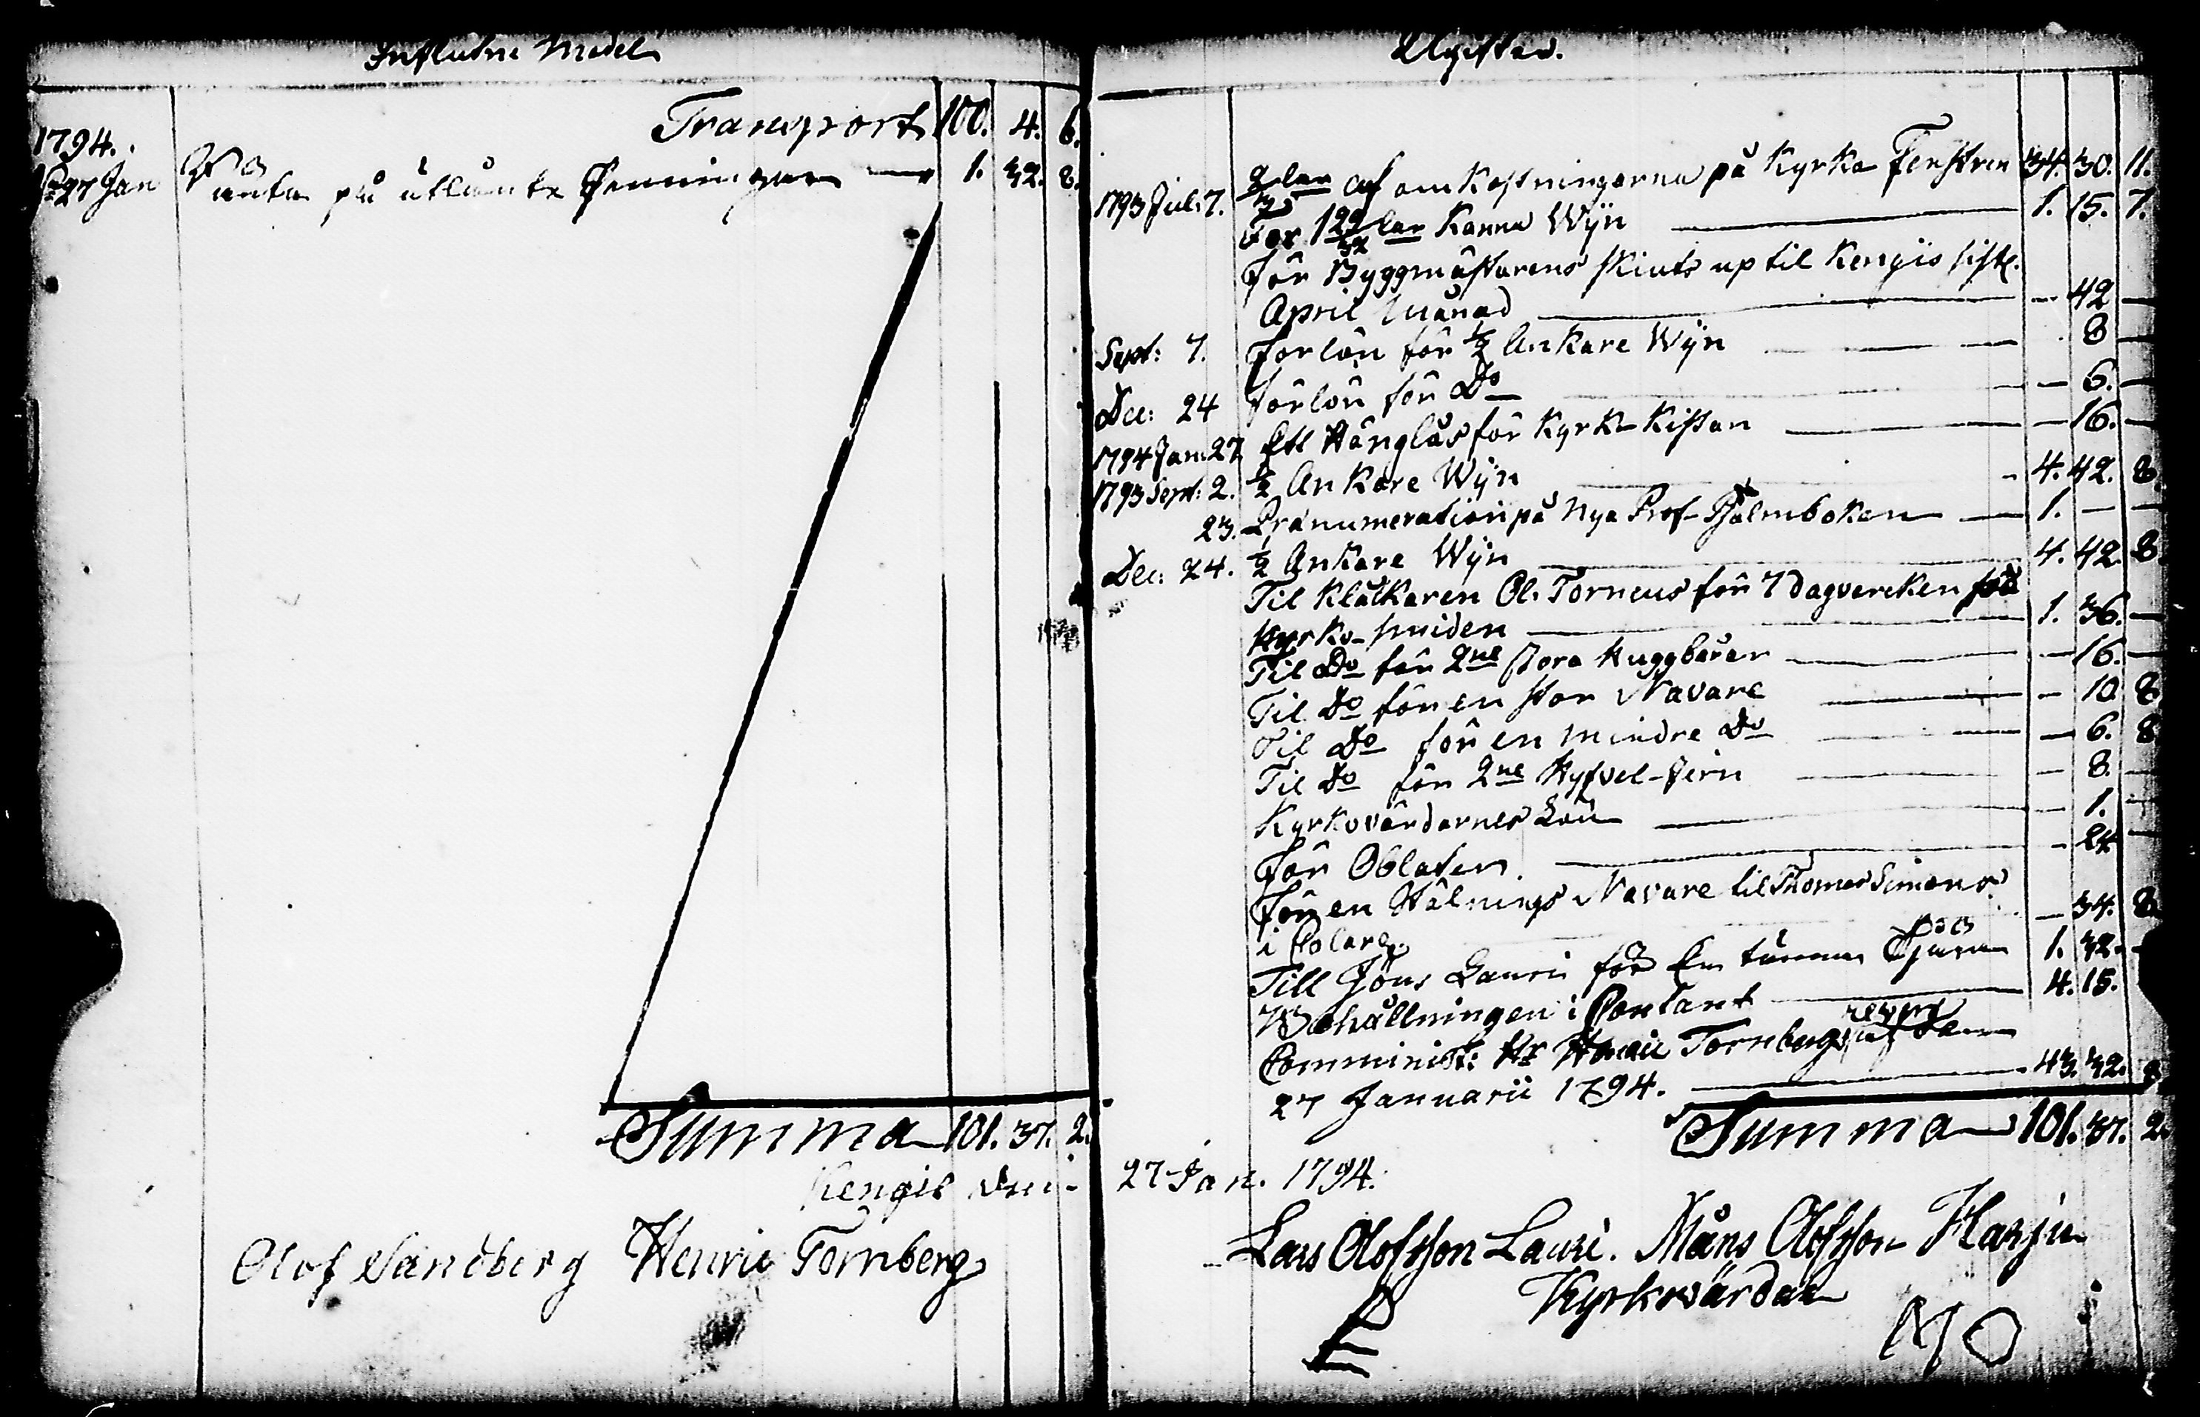 Influtne Medel
Transport 100. 4. 6.
1794.
d. 27 Jan Ränta på utlånte Penningar 1. 32. 8.
Summa 101. 37. 2.
Kengis den
Olof Sandberg Henric Tornberg
Utgifter.
1793 Jul: 7. 2/3 lar af omkostningarna på Kyrko Fenstren 34. 30. 11.
För 1 29/32 lar Kanna Wijn 1. 15. 7.
För Byggmästarens skiuts up til Kengis sistl.
April Månad — 42 —
Sept: 7. Forlön för ½ Ankare Wijn 8 —
Dec: 24 Förlön för Do — 6. —
1794 Jan: 27. Ett Hänglås för Kyrk-Kistan — 16. —
1793 Sept: 2. ½ Ankare Wijn 4. 42. 8.
23. Prænumeration på Nya Prof-Psalmboken 1. — —
Dec: 24. ½ Ankare Wijn 4. 42. 8.
Til Klåckaren Ol. Torneus för 7 dagsvercken för
Kyrko-smiden 1. 36. —
Til Do för 2ne stora Huggbårar — 16. —
Til Do för en stor Navare — 10 8
Til Do för en mindre Do — 6. 8
Til Do för 2ne Hyfvel-Jern — 8. —
Kyrkovärdarnes Lön — 1. —
För Oblater. — 24 —
För en Hålnings Navare til Thomas Simons
i Colare — 34. 8
Till Jöns Lauri för En tunna Tjära 1. 32. —
Behållningen i Contant 4. 15.
Comminist: Hr Henric Tornbergs revers af den
27 Januarii 1794. 43. 32. 8.
Summa 101. 37. 2.
27 Jan. 1794.
Lars Olofsson Lauri. Måns Olofsson Harju
Kyrkovärdar
MO